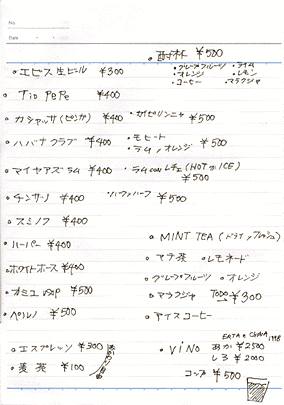 No.
Date
酎杯 ¥500
・グレープフルーツ ・ライム
・オレンジ ・レモン
・コーヒー ・マラクジャ
・エビス生ビール ¥300
・Tio PePe ¥400
・カシャッサ(ピンガ) ¥400 ・カイピリンニャ ¥500
・ハバナクラブ ¥400 ・モヒート
・ラム/オレンジ ¥500
・マイヤアズラム ¥400 ・ラムconレチェ(HOT or ICE)
¥500
・チンザノ ¥400 ・ハーフ/ハーフ ¥500
・スミノフ ¥400
・ハーパー ¥400
・ホワイトホース ¥400
・カミュ VSOP ¥500
・ペルノ ¥500
・MINT TEA (ドライ/フレッシュ)
・マテ茶 ・レモネード
・グレープフルーツ ・オレンジ
・マラクジャ TODO ¥300
・アイスコーヒー
・エスプレッソ ¥300
・麦茶 ¥100
・ViNo
あか ¥2500
しろ ¥2000
コップ ¥500